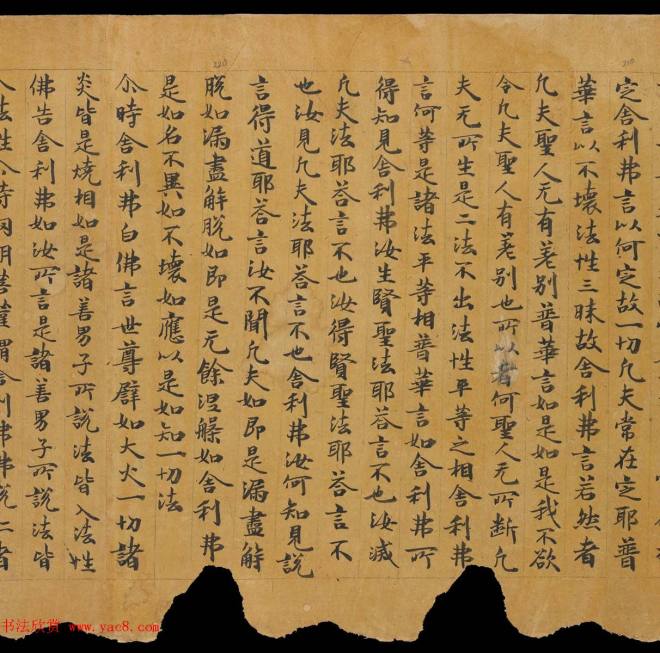 定舍利弗言以何定故一切凡夫常在定耶普
華言以不壞法性三昧故舍利弗言若然者
凡夫聖人无有差別普華言如是如是我不欲
令凡夫聖人有差別也所以者何聖人无所断凡
夫无所生是二法不出法性平等之相舍利弗
言何等是諸法平等相普華言如舍利弗所
得知見舍利弗汝生賢聖法耶荅言不也汝滅
凡夫法耶荅言不也汝得賢聖法耶荅言不
也汝見凡夫法耶荅言不也舍利弗汝何知見說
言得道耶荅言汝不聞凡夫如即是漏盡解
脫如漏盡解脫如即是无餘涅槃如舍利弗
是如名不異如不壞如應以是如知一切法
尒時舍利弗白佛言世尊譬如大火一切諸
炎皆是燒相如是諸善男子所說法皆入法性
佛告舍利弗如汝所言是諸善男子所說法皆
入法性尒時網明菩薩謂舍利弗佛說仁者
书法欣赏 www.yac8.com